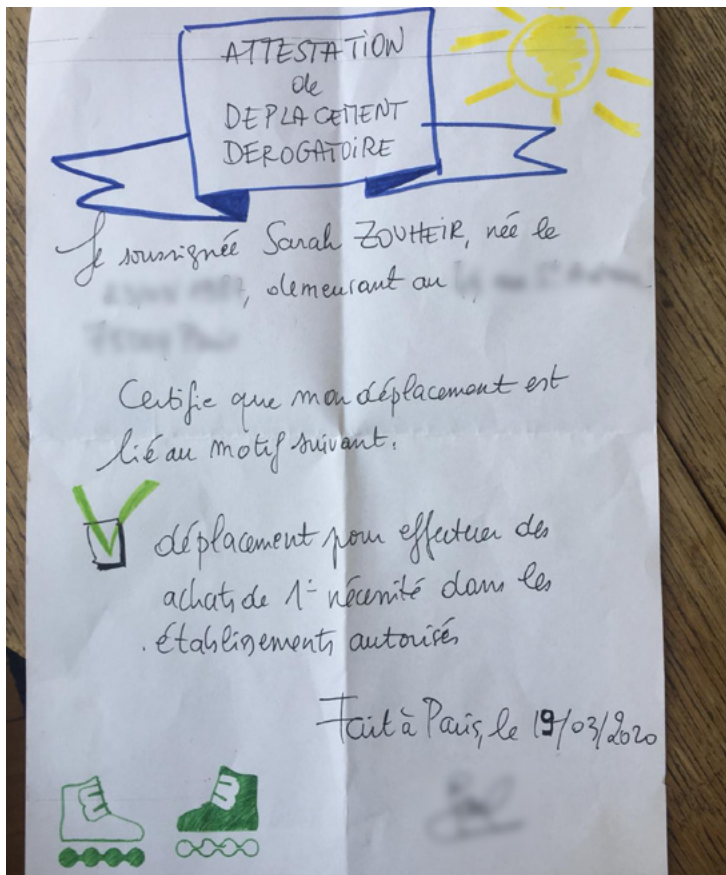 ATTESTATION
de
DEPLACEMENT
DEROGATOIRE
Je soussignée Sarah ZOUHEIR, née le
, demeurant au
Certifie que mon déplacement est
lié au motif suivant.
déplacement pour effectuer des
achats de 1- nécessité dans les
établissements autorisés
Fait à Paris, le 19/03/2020